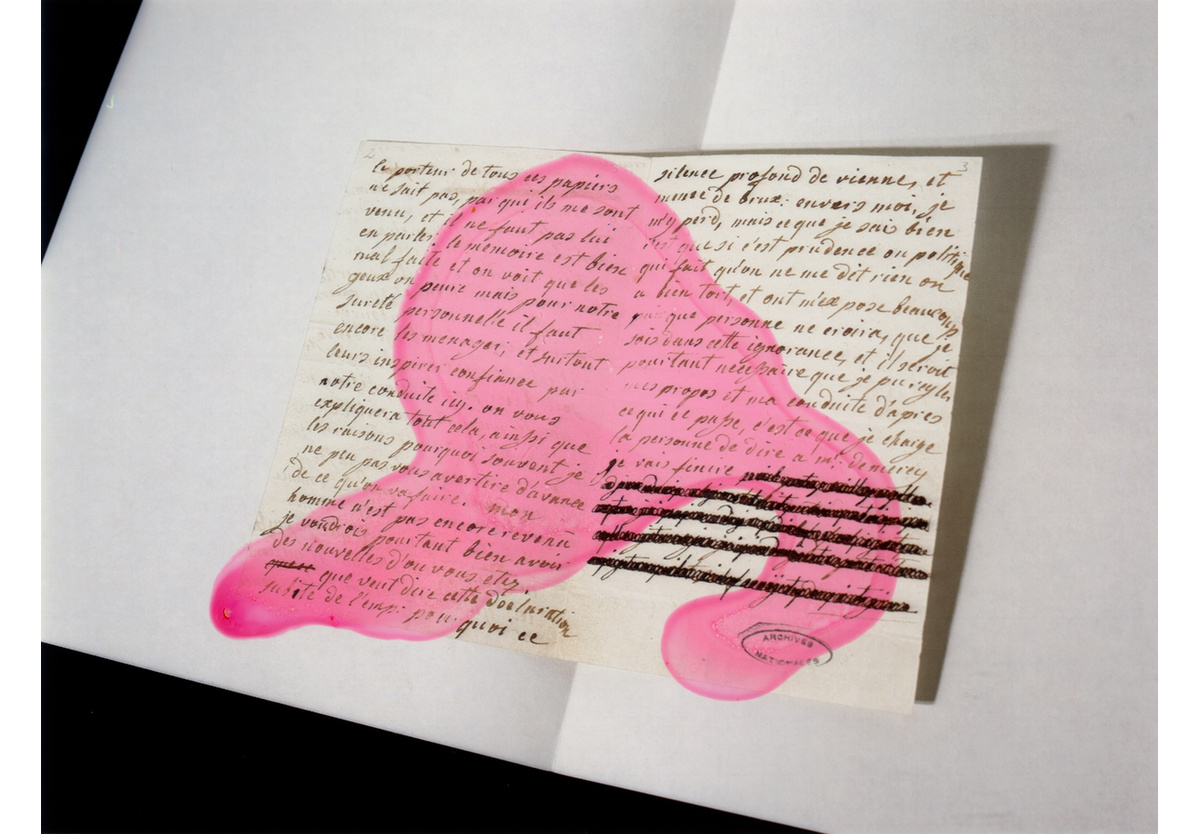 2
le porteur de tous ces papiers
ne sait pas, par qui ils me sont
venu, et il ne faut pas lui
en parler, le mémoire est bien
mal faite et on voit que les
geux on peure mais pour notre
sureté personnelle il faut
encore les menager, et surtout
leurs inspirer confiance par
notre conduite icy. on vous
expliquera tout cela, ainssi que
les raisons pourquoi souvent je
ne peu pas vous avertire d'avance
de ce qu'on va faire. mon
homme n'est pas encore revenu
je voudrois pourtant bien avoir
des nouvelles d'ou vous etez
que veut dire cette déclaration
subite de l'emp: pourquoi ce
3
silence profond de vienne, et
meme de brux: envers moi, je
m'y perd, mais ce que je sais bien
c'est que si c'est prudence ou politique
qui fait qu'on ne me dit rien on
a bien tort, et ont m'expose beaucoup
puisque personne ne croira, que je
sois dans cette ignorance, et il seroit
pourtant necessaire que je puregle
mes propos et ma conduite d'apres
ce qui ce passe, c'est ce que je charge
la personne de dire a mr. de mercy
je vais finire
ARCHIVES
NATIONALES